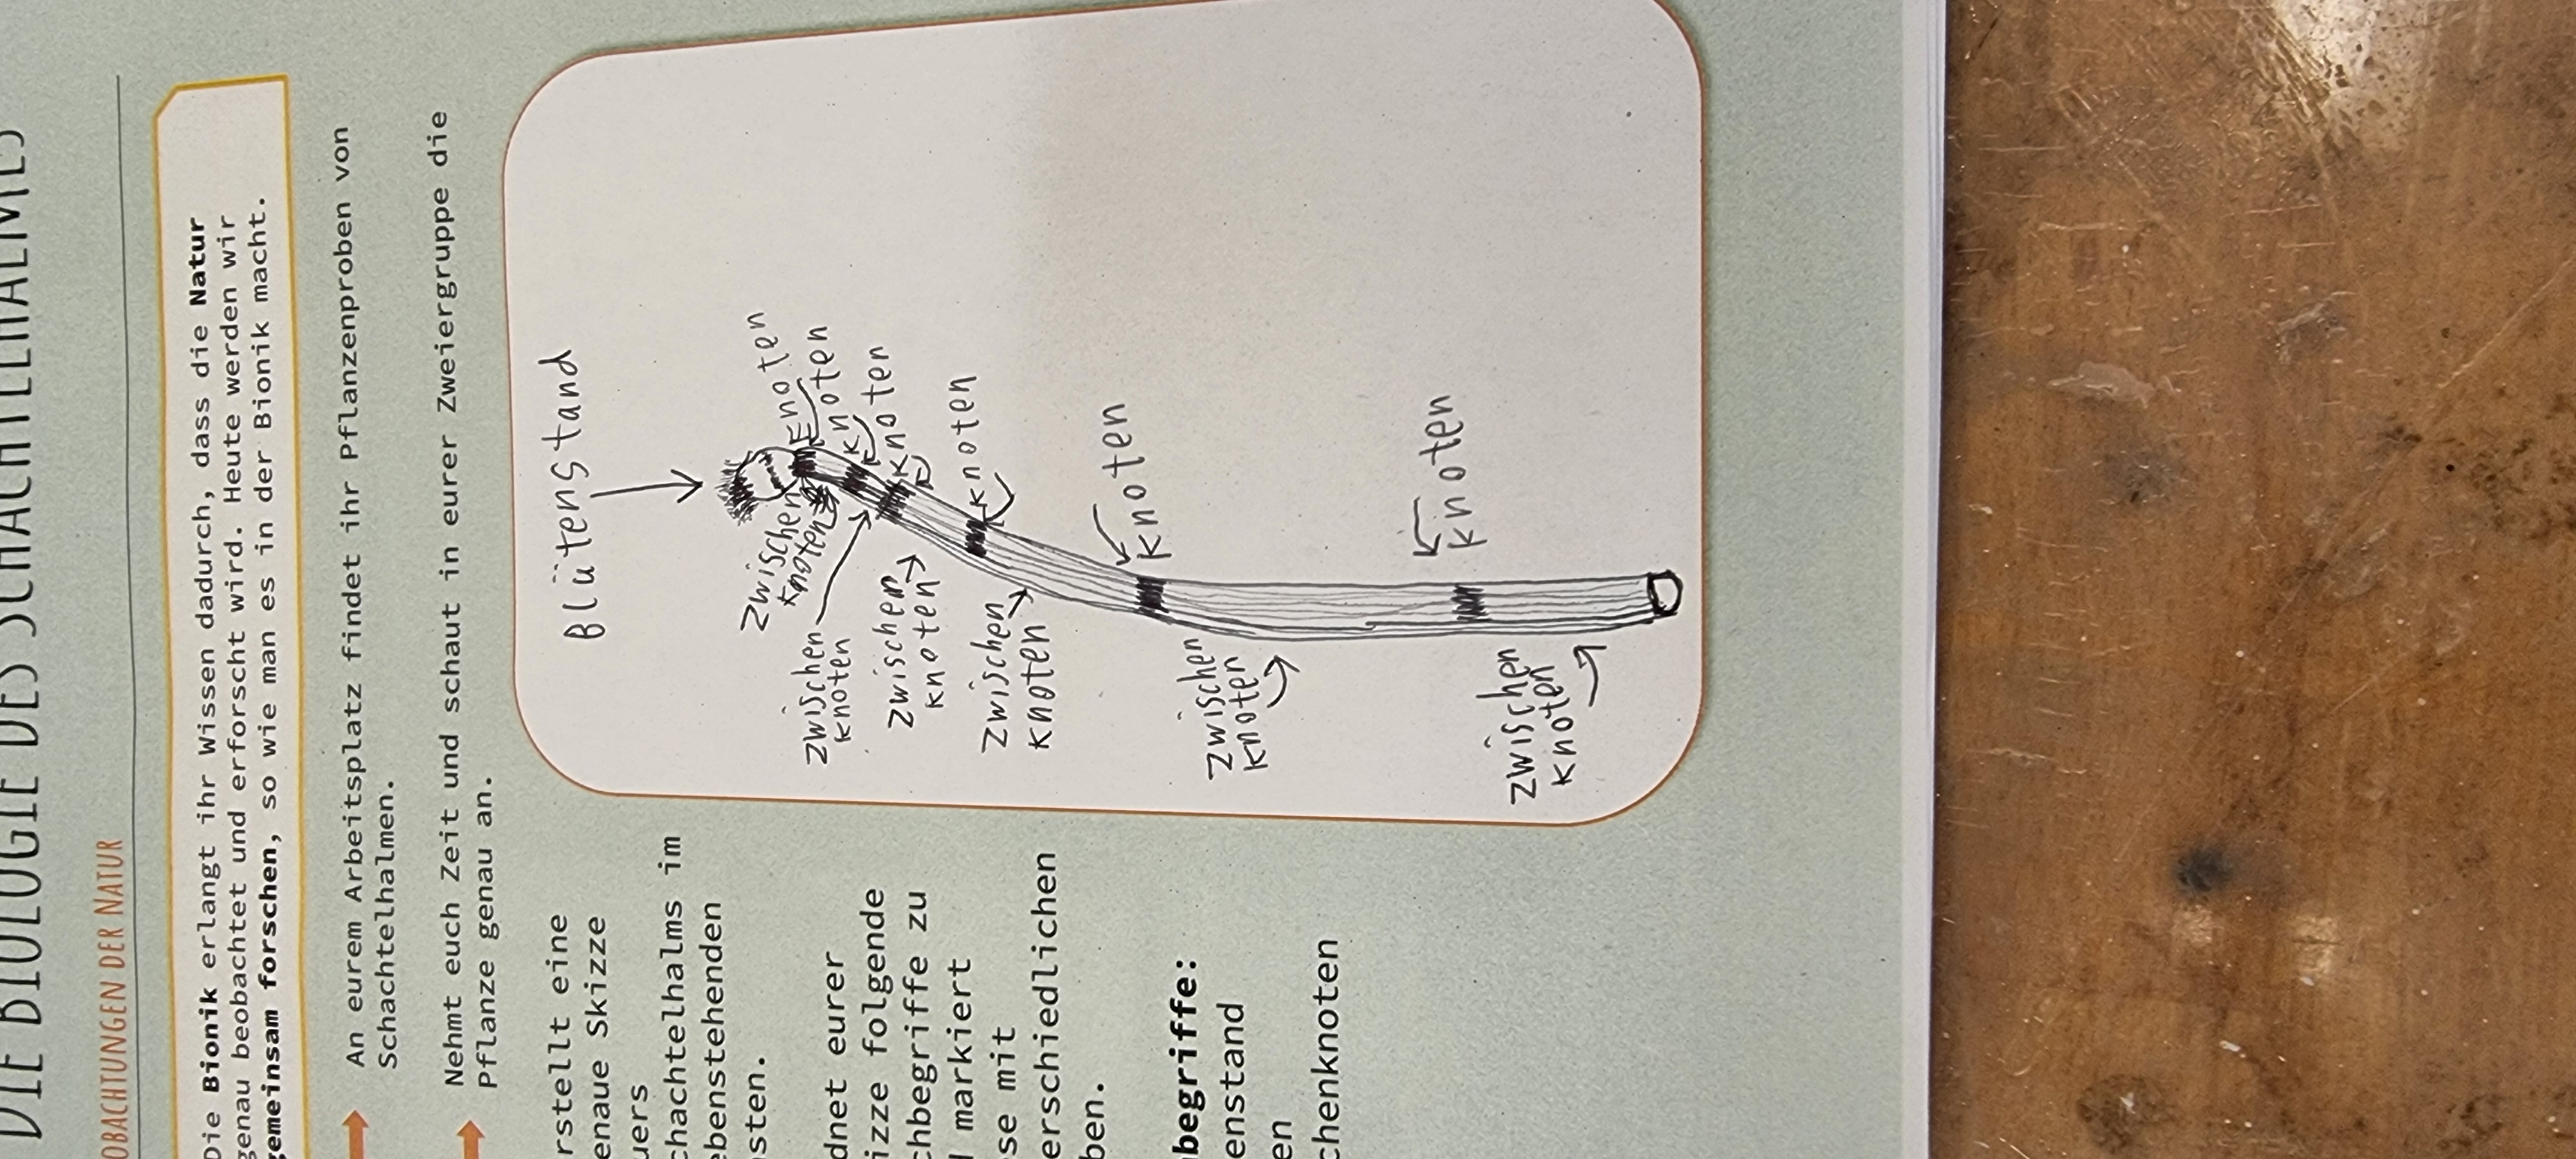 DIE BIOLOGIE DES SCHACHTELHALMES
OBACHTUNGEN DER NATUR
Die Bionik erlangt ihr Wissen dadurch, dass die Natur
genau beobachtet und erforscht wird. Heute werden wir
gemeinsam forschen, so wie man es in der Bionik macht.
An eurem Arbeitsplatz findet ihr Pflanzenproben von
Schachtelhalmen.
Nehmt euch Zeit und schaut in eurer Zweiergruppe die
Pflanze genau an.
rstellt eine
enaue Skizze
uers
chachtelhalms im
ebenstehenden
sten.
dnet eurer
izze folgende
chbegriffe zu
d markiert
se mit
erschiedlichen
ben.
hbegriffe:
enstand
en
chenknoten
Blütenstand
Knoten
knoten
knoten
knoten
knoten
knoten
zwischen
knoten
zwischen
knoten
zwischen
knoten
zwischen
knoten
zwischen
knoten
zwischen
knoten